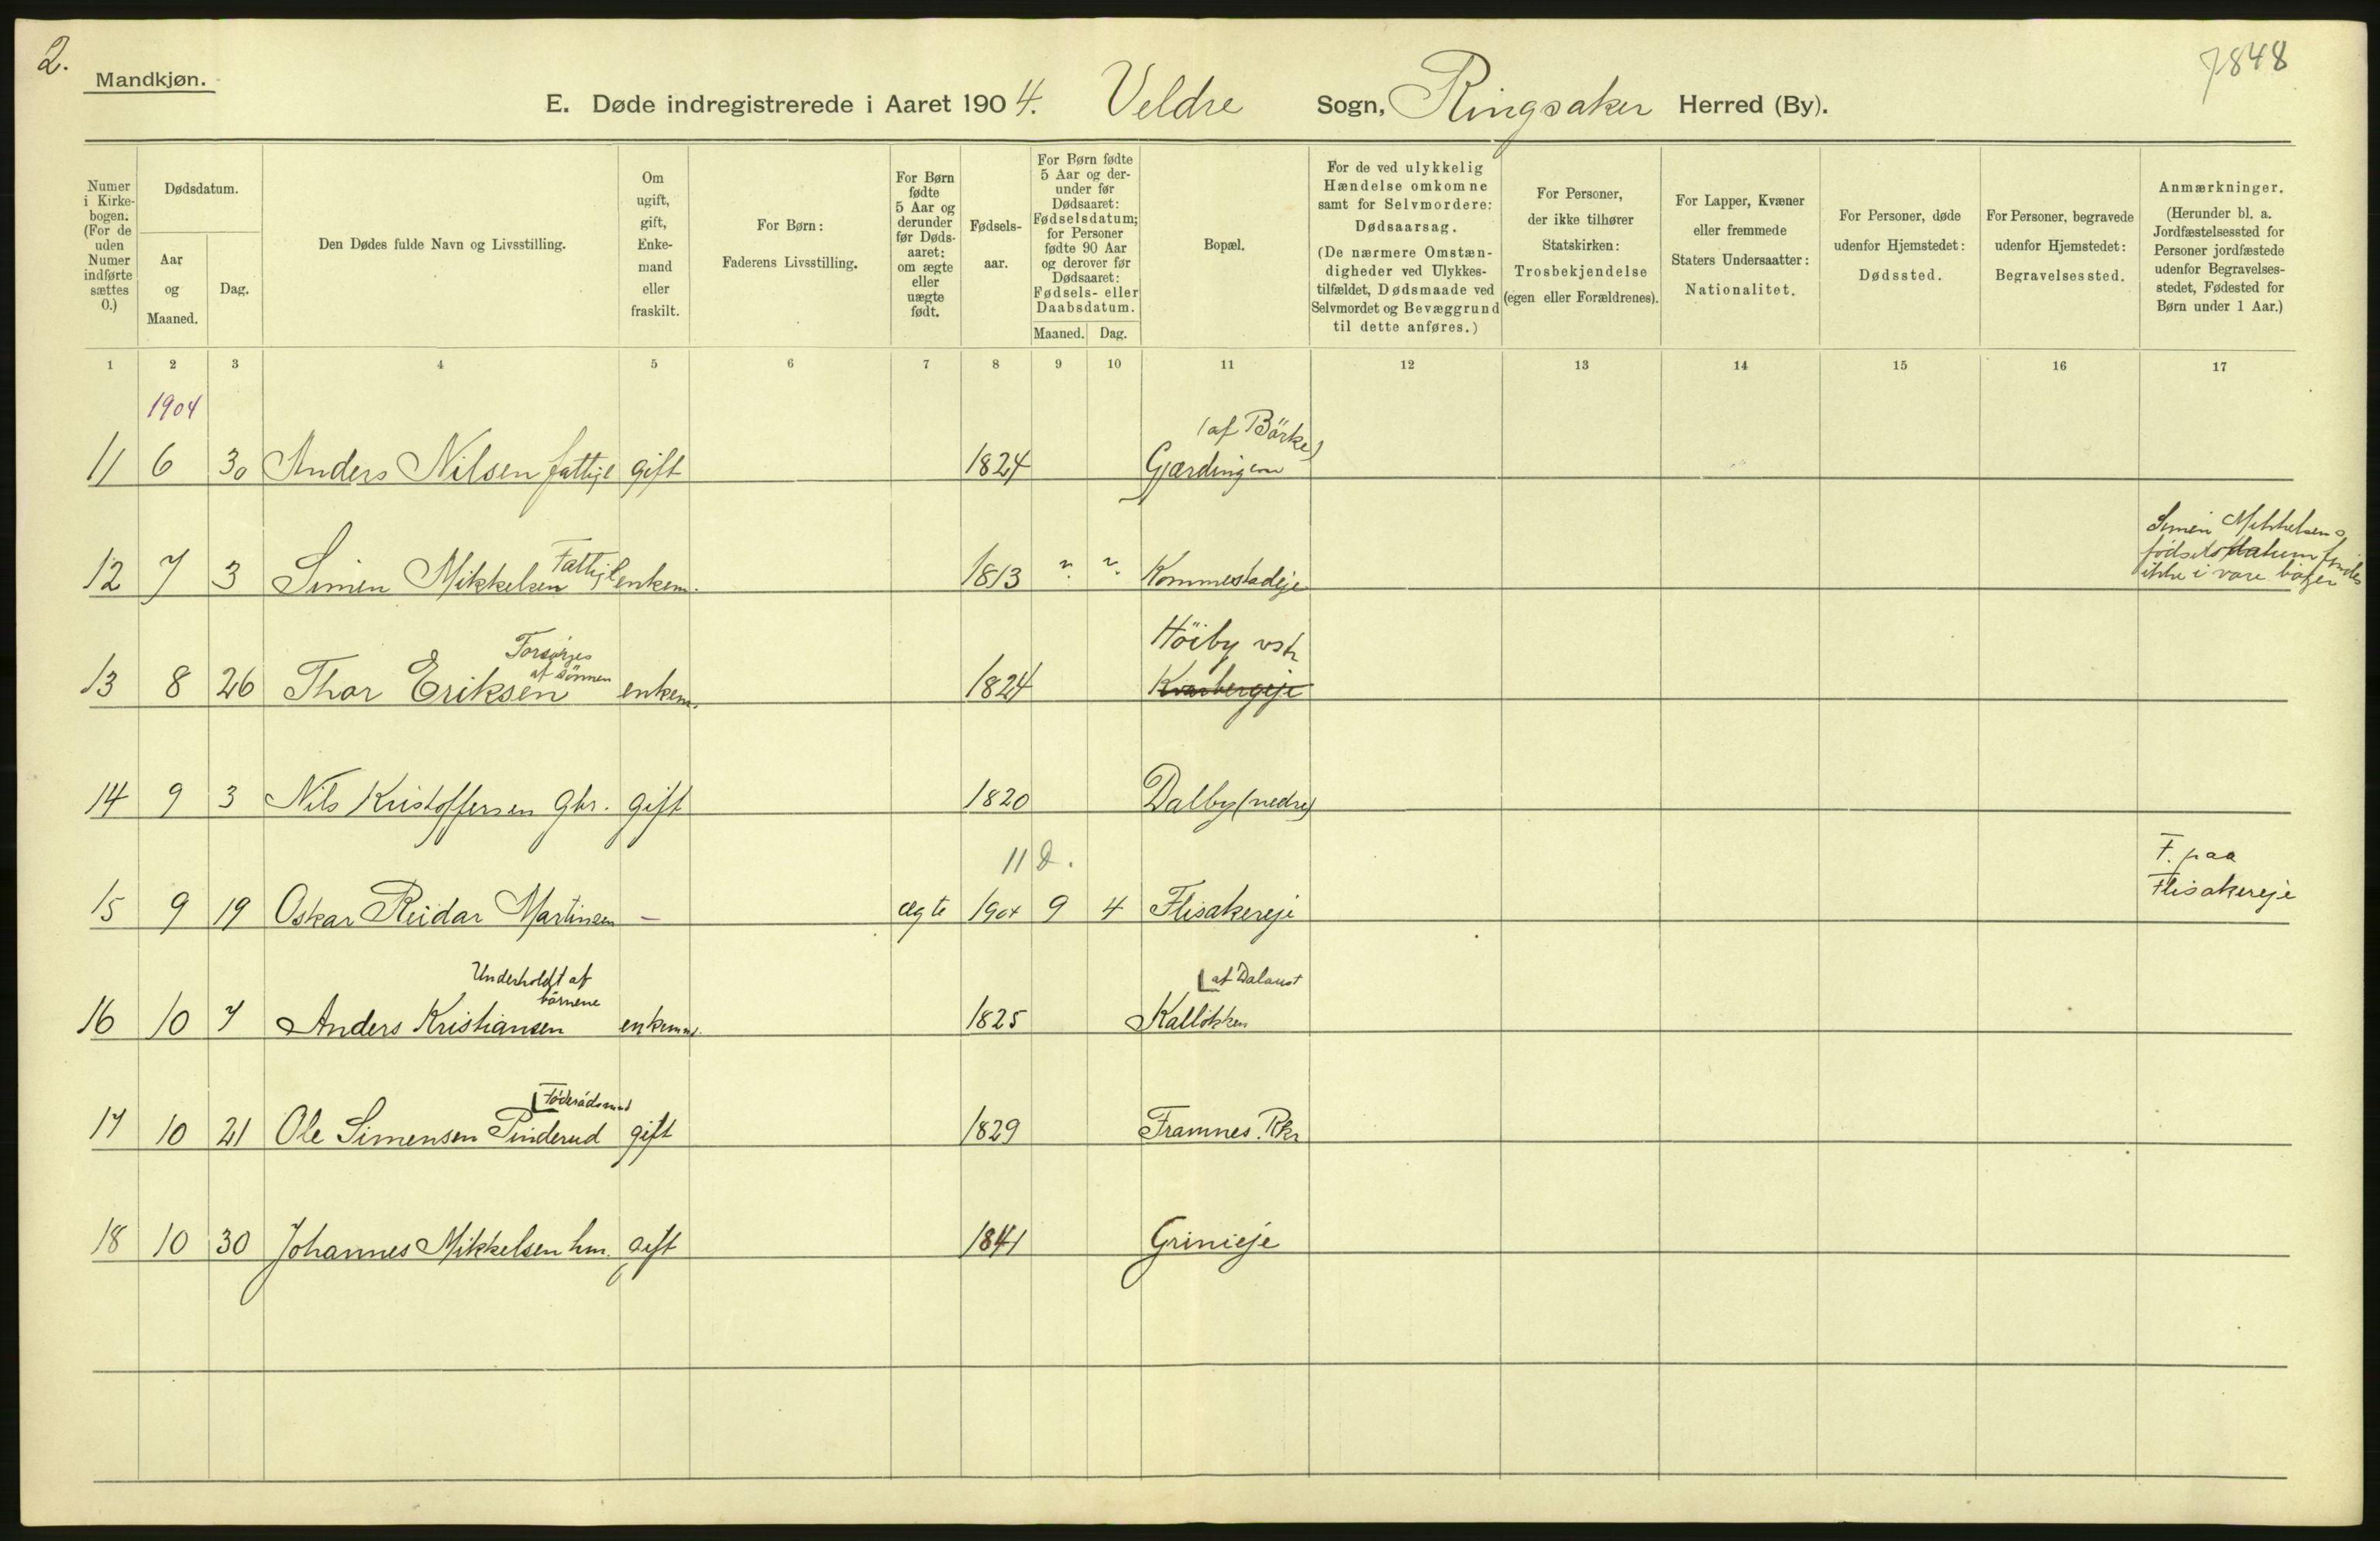 2.
Mandkjøn.
7848
E. Døde indregistrerede i Aaret 1904. Veldre Sogn, Ringsaker Herred (By).
Numer
i Kirke-
bogen.
(For de
uden
Numer
indførte
sættes
0.)
Dødsdatum.
Aar
og
Maaned.
Dag.
Den Dødes fulde Navn og Livsstilling.
Om
ugift,
gift,
Enke-
mand
eller
fraskilt.
For Børn:
Faderens Livsstilling.
For Børn
fødte
5 Aar og
derunder
før Døds-
aaret:
om ægte
eller
uægte
født.
Fødsels-
aar.
For Børn fødte
5 Aar og der-
under før
Dødsaaret:
Fødselsdatum;
for Personer
fødte 90 Aar
og derover før
Dødsaaret:
Fødsels- eller
Daabsdatum.
Maaned. Dag.
Bopæl.
For de ved ulykkelig
Hændelse omkomne
samt for Selvmordere:
Dødsaarsag.
(De nærmere Omstæn-
digheder ved Ulykkes-
tilfældet, Dødsmaade ved
Selvmordet og Bevæggrund
til dette anføres.)
For Personer,
der ikke tilhører
Statskirken:
Trosbekjendelse
(egen eller Forældrenes).
For Lapper, Kvæner
eller fremmede
Staters Undersaatter:
Nationalitet.
For Personer, døde
udenfor Hjemstedet:
Dødssted.
For Personer, begravede
udenfor Hjemstedet:
Begravelsessted.
Anmærkninger.
(Herunder bl. a.
Jordfæstelsessted for
Personer jordfæstede
udenfor Begravelses-
stedet, Fødested for
Børn under 1 Aar.)
1 2 3 4 5 6 7 8 9 10 11 12 13 14 15 16 17
1904
(af Börke)
11 6 30 Anders Nilsen fattigl gift 1824 Gjærdingen
Simen Mikkelsens
fødselsdatum findes
ikke i vore bøger
Fattigl
12 7 3 Simen Mikkelsen enkem. 1813 ? ? Kommestadeje
Forsørges
af sönnen
Höiby vstr
13 8 26 Thor Eriksen enkem. 1824 Kvarbergeje
14 9 3 Nils Kristoffersen gbr. gift 1820 Dalby (nedre)
11 D.
F. paa
Flisakereje
15 9 19 Oskar Reidar Martinsen – ægte 1904 9 4 Flisakereje
Underholdt af
börnene
af Dalaust
16 10 7 Anders Kristiansen enkemd. 1825 Kallökken
Föderådsmd
17 10 21 Ole Simensen Pinderud gift 1829 Framnes. Rkr
18 10 30 Johannes Mikkelsen hm. gift 1841 Grinieje